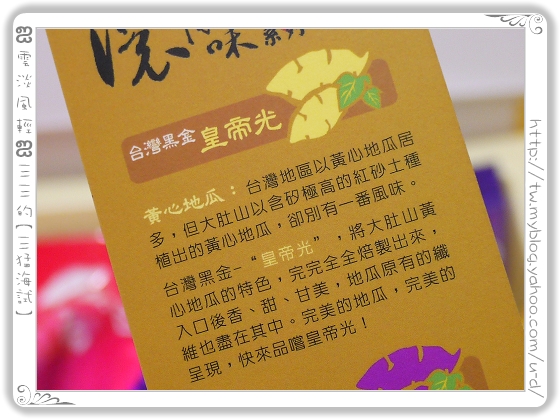 味系列
台灣黑金 皇帝光
黃心地瓜：台灣地區以黃心地瓜居
多，但大肚山以含矽極高的紅砂土種
植出的黃心地瓜，卻別有一番風味。
台灣黑金-“皇帝光”，將大肚山黃
心地瓜的特色，完完全全焙製出來，
入口後香、甜、甘美，地瓜原有的纖
維也盡在其中。完美的地瓜，完美的
呈現，快來品嚐皇帝光！
雲淡風輕 三三三的【三猛海試】
http://tw.myblog.yahoo.com/u-d/